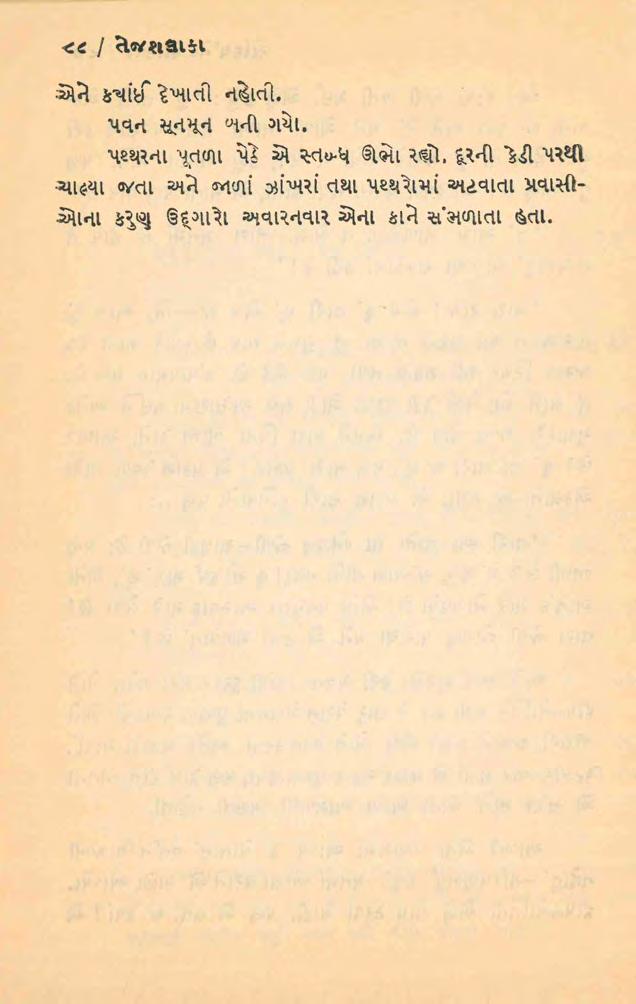 ૮૮ / તેજશલાકા
એને કયાંઈ દેખાતી નહોતી.
પવન સૂનમૂન બની ગયો.
પથ્થરના પૂતળા પેઠે એ સ્તબ્ધ ઊભો રહ્યો. દૂરની કેડી પરથી
ચાલ્યા જતા અને જાળાં ઝાંખરાં તથા પથ્થરોમાં અટવાતા પ્રવાસી-
ઓના કરુણ ઉદ્ગારો અવારનવાર એના કાને સંભળાતા હતા.